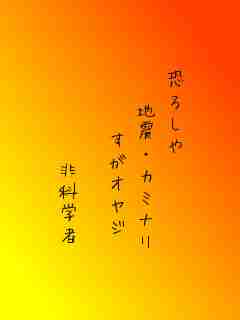 恐ろしや
地震・カミナリ
すがオヤジ
非科学者